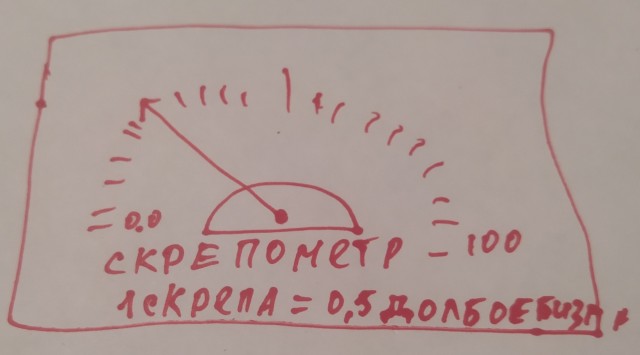 0.0
100
СКРЕПОМЕТР
1 СКРЕПА = 0,5 ДОЛБОЕБИЗМА